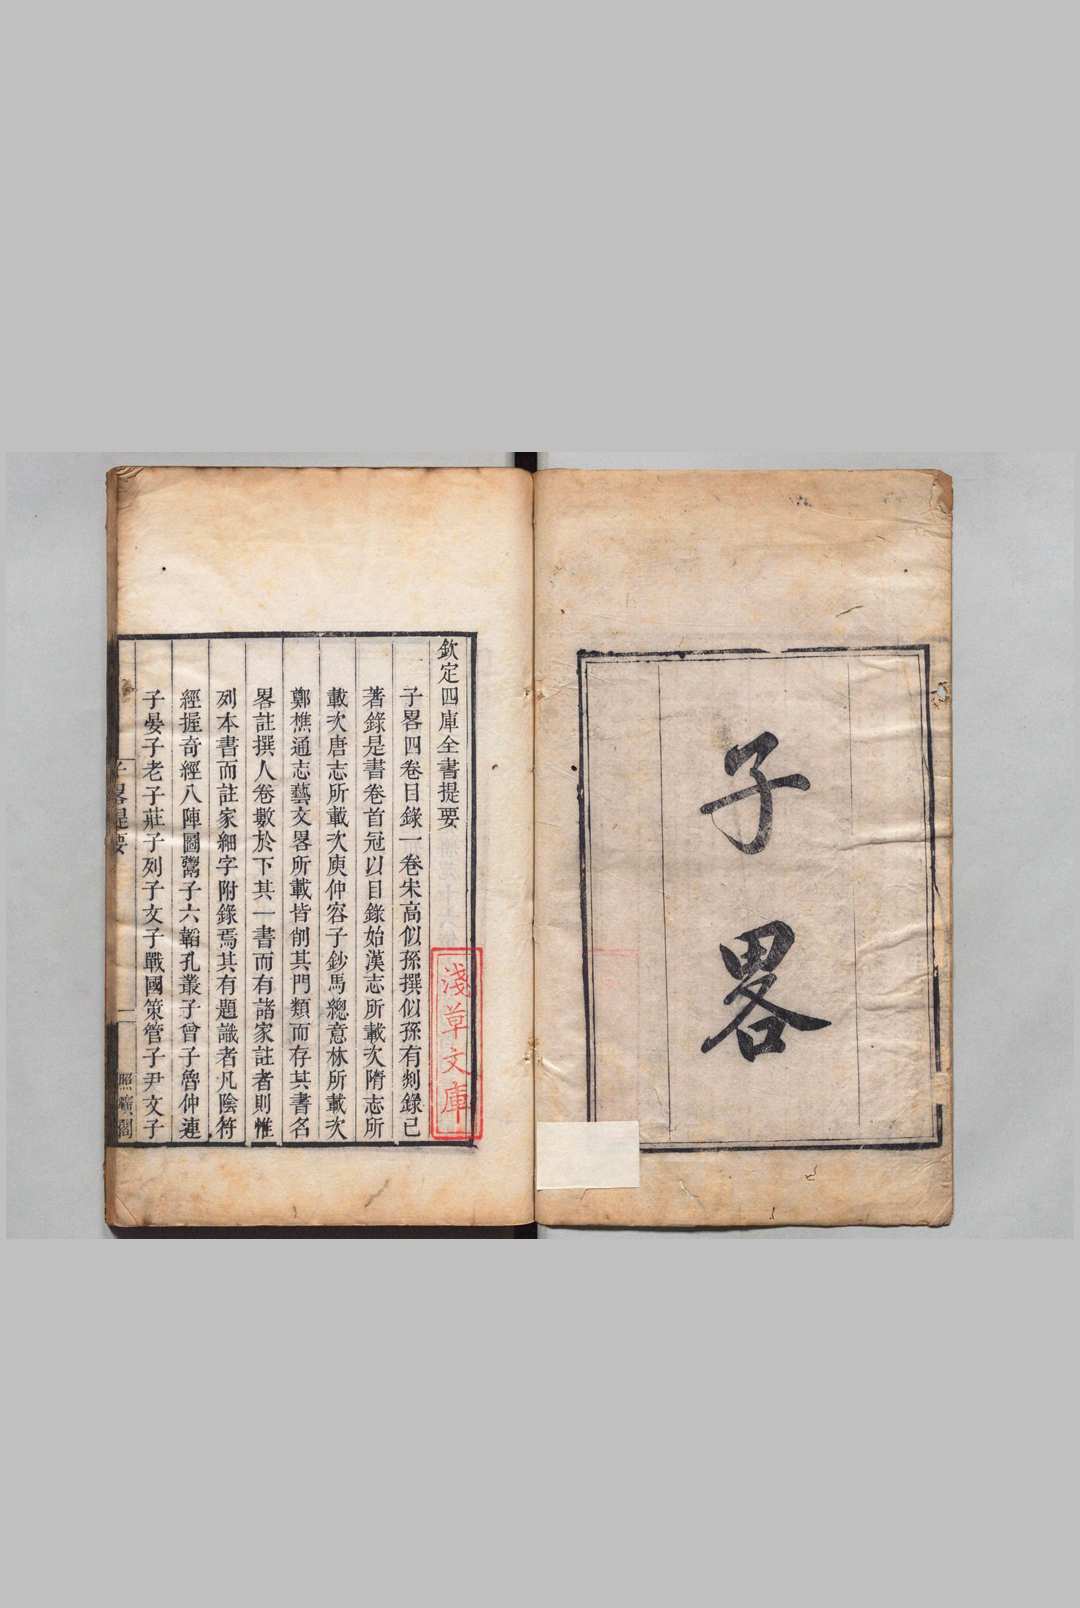 子畧
欽定四庫全書提要
子畧四卷目錄一卷宋高似孫撰似孫有剡錄已
著錄是書卷首冠以目錄始漢志所載次隋志所
載次唐志所載次庾仲容子鈔馬總意林所載次
鄭樵通志藝文畧所載皆削其門類而存其書名
畧註撰人卷數於下其一書而有諸家註者則惟
列本書而註家細字附錄焉其有題識者凡陰符
經握奇經八陣圖鬻子六韜孔叢子曾子魯仲連
子晏子老子莊子列子文子戰國策管子尹文子
子畧提要
一
照曠閣
淺草文庫